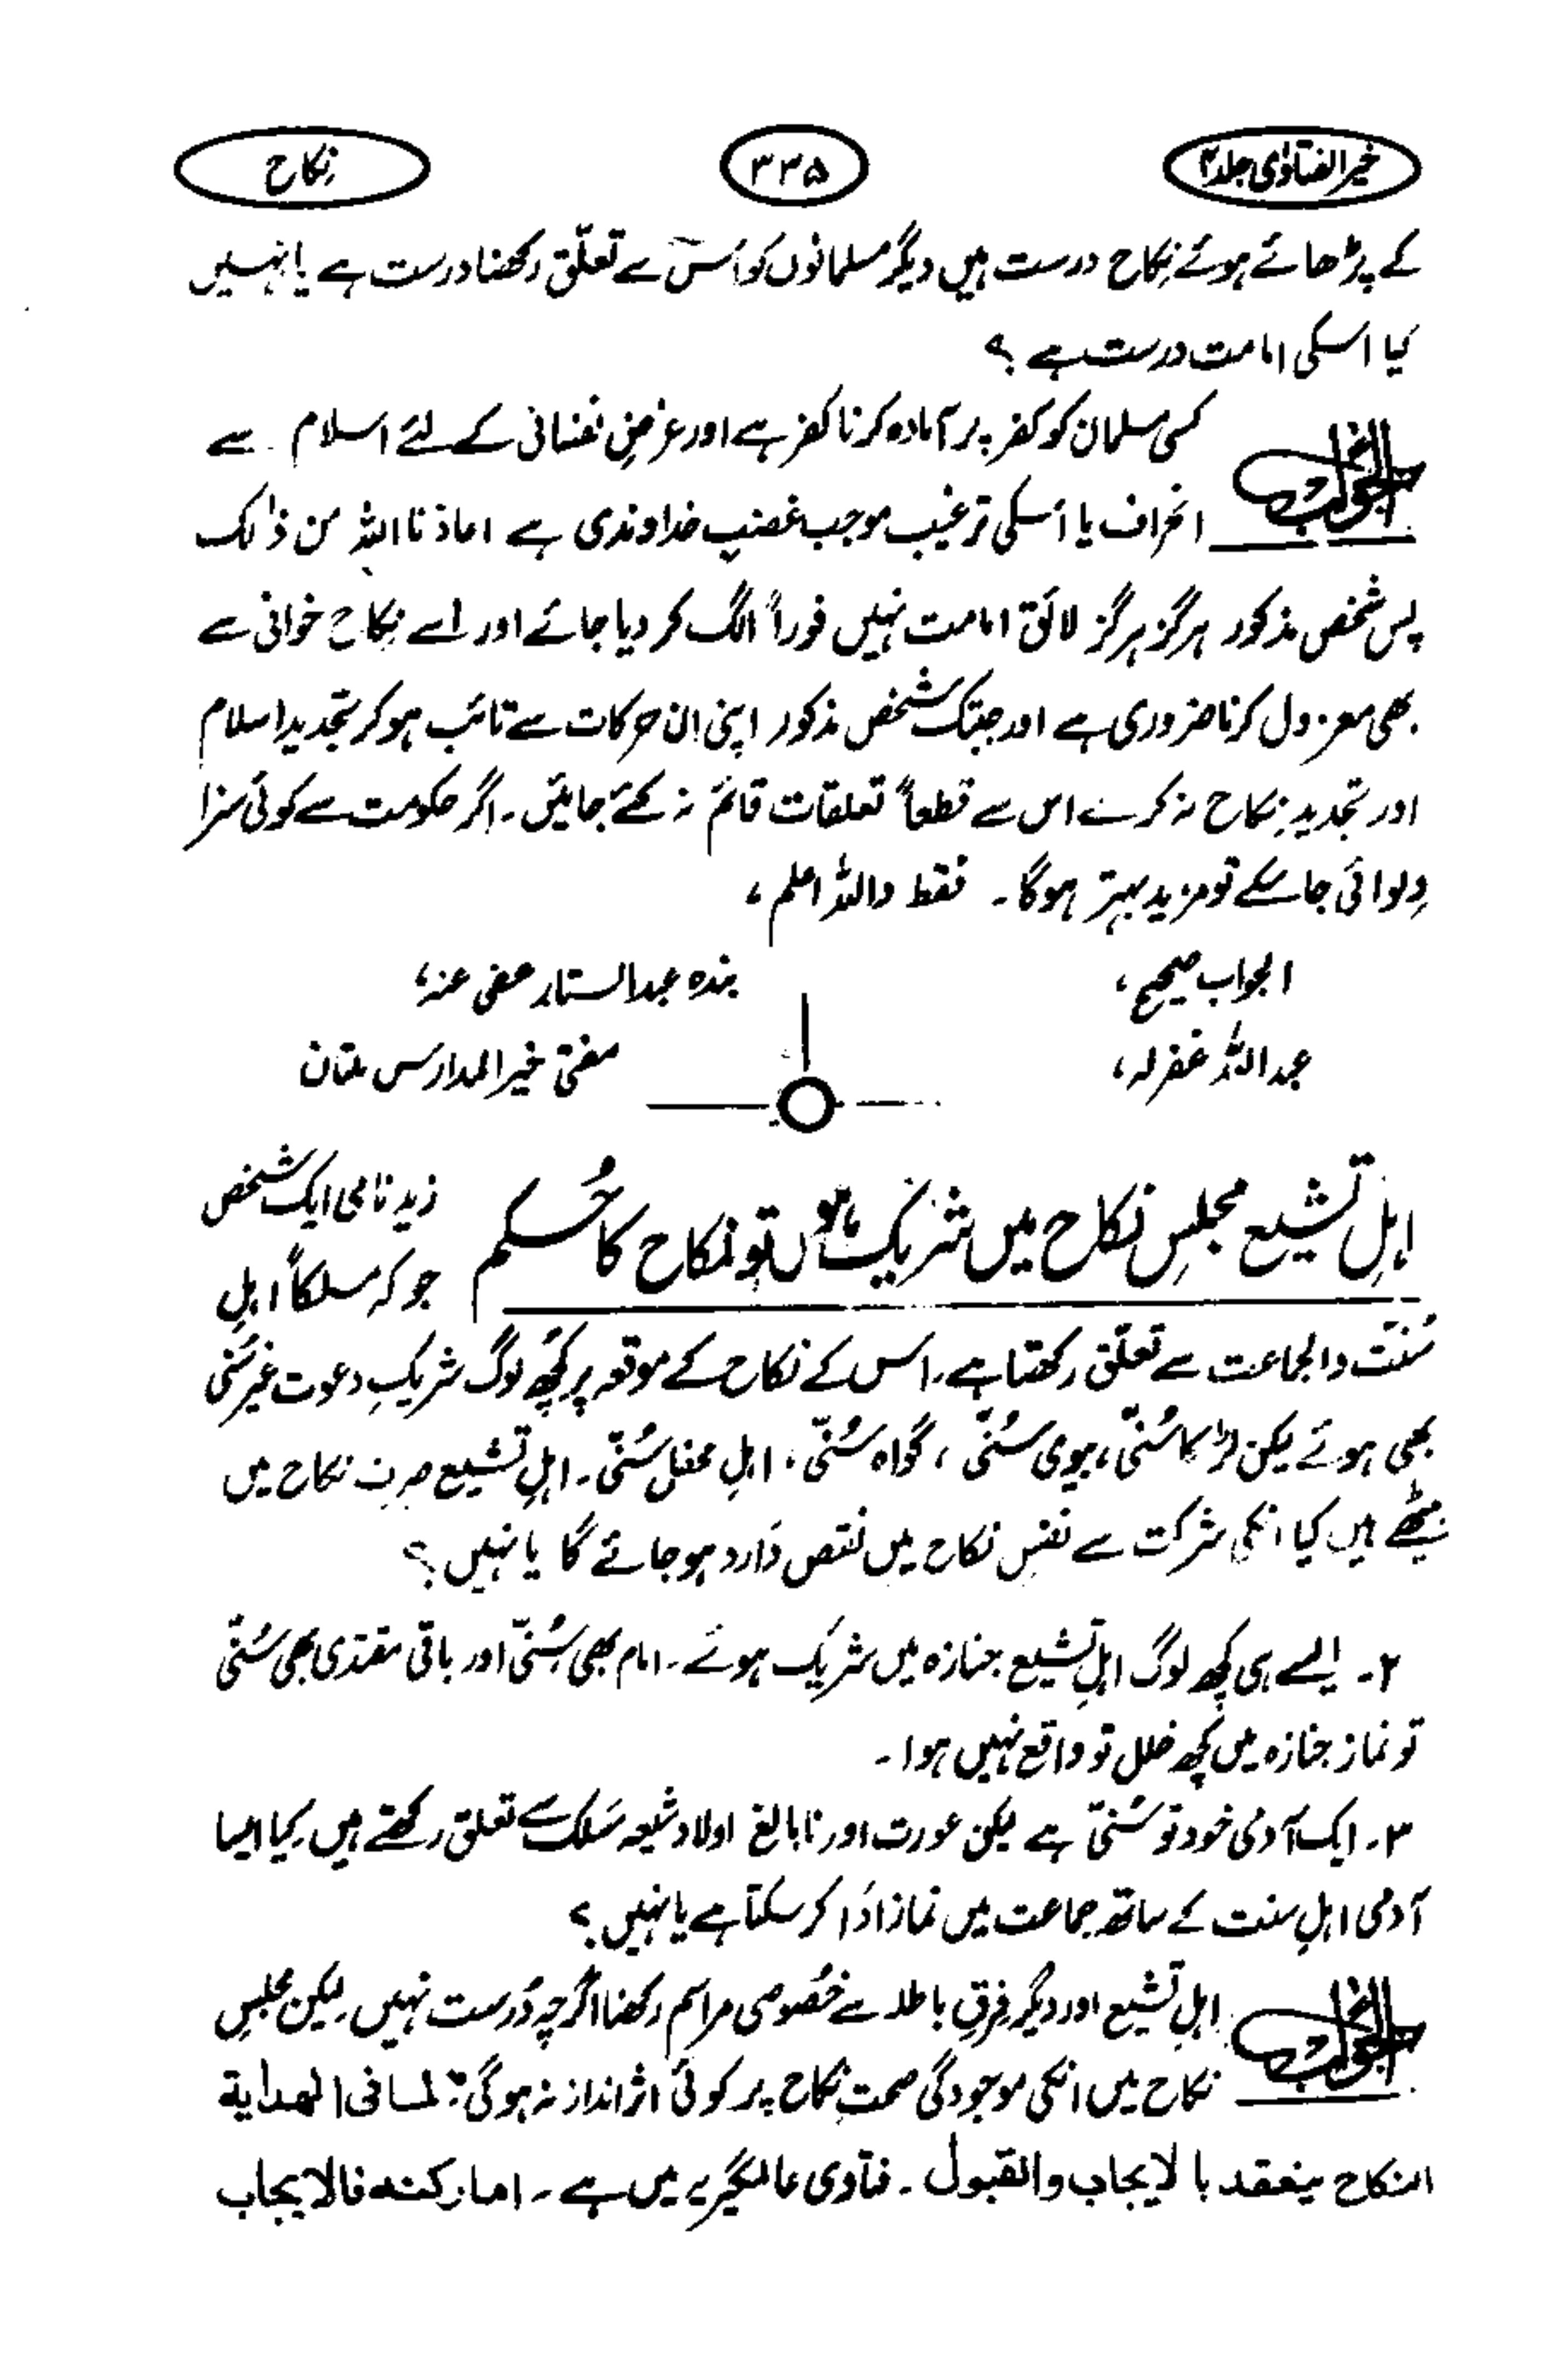 خیر الفتاوٰی جلد ۴
۳۳۵
نکاح
کے پڑھائے ہوئے نکاح درست ہیں دیگر مسلمانوں کو اُس سے تعلّق رکھنا درست ہے یا نہیں
کیا اسکی امامت درست ہے ؟
الجواب
کسی مسلمان کو کفر پر آمادہ کرنا کفر ہے اور غرضِ نفسانی کے لئے اسلام سے
انحراف یا اسکی ترغیب موجب غضبِ خداوندی ہے اعاذنا اللہ من ذٰلک
پس شخص مذکور ہرگز ہرگز لائق امامت نہیں فوراً الگ کر دیا جائے اور اسے نکاح خوانی سے
بھی معزول کرنا ضروری ہے اور جبتک شخص مذکور اپنی ان حرکات سے تائب ہو کر تجدید اسلام
اور تجدیدِ نکاح نہ کرے اس سے قطعاً تعلقات قائم نہ کئے جائیں ۔ اگر حکومت سے کوئی سزا
دِلوائی جا سکے تو مزید بہتر ہوگا ۔ فقط واللہ اعلم ،
الجواب صحیح ،
بندہ عبد الستار عفی عنہ ،
عبد اللہ غفرلہ ،
مفتی خیر المدارس ملتان
اہلِ تشیع مجلسِ نکاح میں شریک ہوں تو نکاح کا حُکم
زید نامی ایک شخص
جو کہ مسلکاً اہلِ
سُنّت والجماعت سے تعلّق رکھتا ہے ۔ اس کے نکاح کے موقعہ پر کچھ لوگ شریکِ دعوت غیر سُنی
بھی ہوئے لیکن لڑکا سُنّی ، بیوی سُنّی ، گواہ سُنّی ، اہلِ محفل سُنّی ۔ اہلِ تشیع صرف نکاح میں
بیٹھے ہیں کیا انکی شرکت سے نفسِ نکاح میں نقص وَارد ہو جائے گا یا نہیں ؟
۲ ۔ ایسے ہی کچھ لوگ اہلِ تشیع جنازہ میں شریک ہوئے ۔ امام بھی سُنّی اور باقی مقتدی بھی سُنّی
تو نماز جنازہ میں کچھ خلل تو واقع نہیں ہوا ۔
۳ ۔ ایک آدمی خود تو سُنّی ہے لیکن عورت اور نابالغ اولاد شیعہ مَسلک سے تعلق رکھتے ہیں ۔ کیا ایسا
آدمی اہلِ سنت کے ساتھ جماعت میں نماز ادَا کر سکتا ہے یا نہیں ؟
الجواب
اہلِ تشیع اور دیگر فِرقِ باطلہ سے خصُوصی مراسم رکھنا اگرچہ دُرست نہیں ۔ لیکن مجلسِ
نکاح میں انکی موجودگی صحتِ نکاح پر کوئی اثر انداز نہ ہوگی ؛ لما فی الهداية
النكاح ينعقد بالايجاب والقبول ۔ فتاوی عالمگیریہ میں ہے ۔ اما ركنه فالايجاب